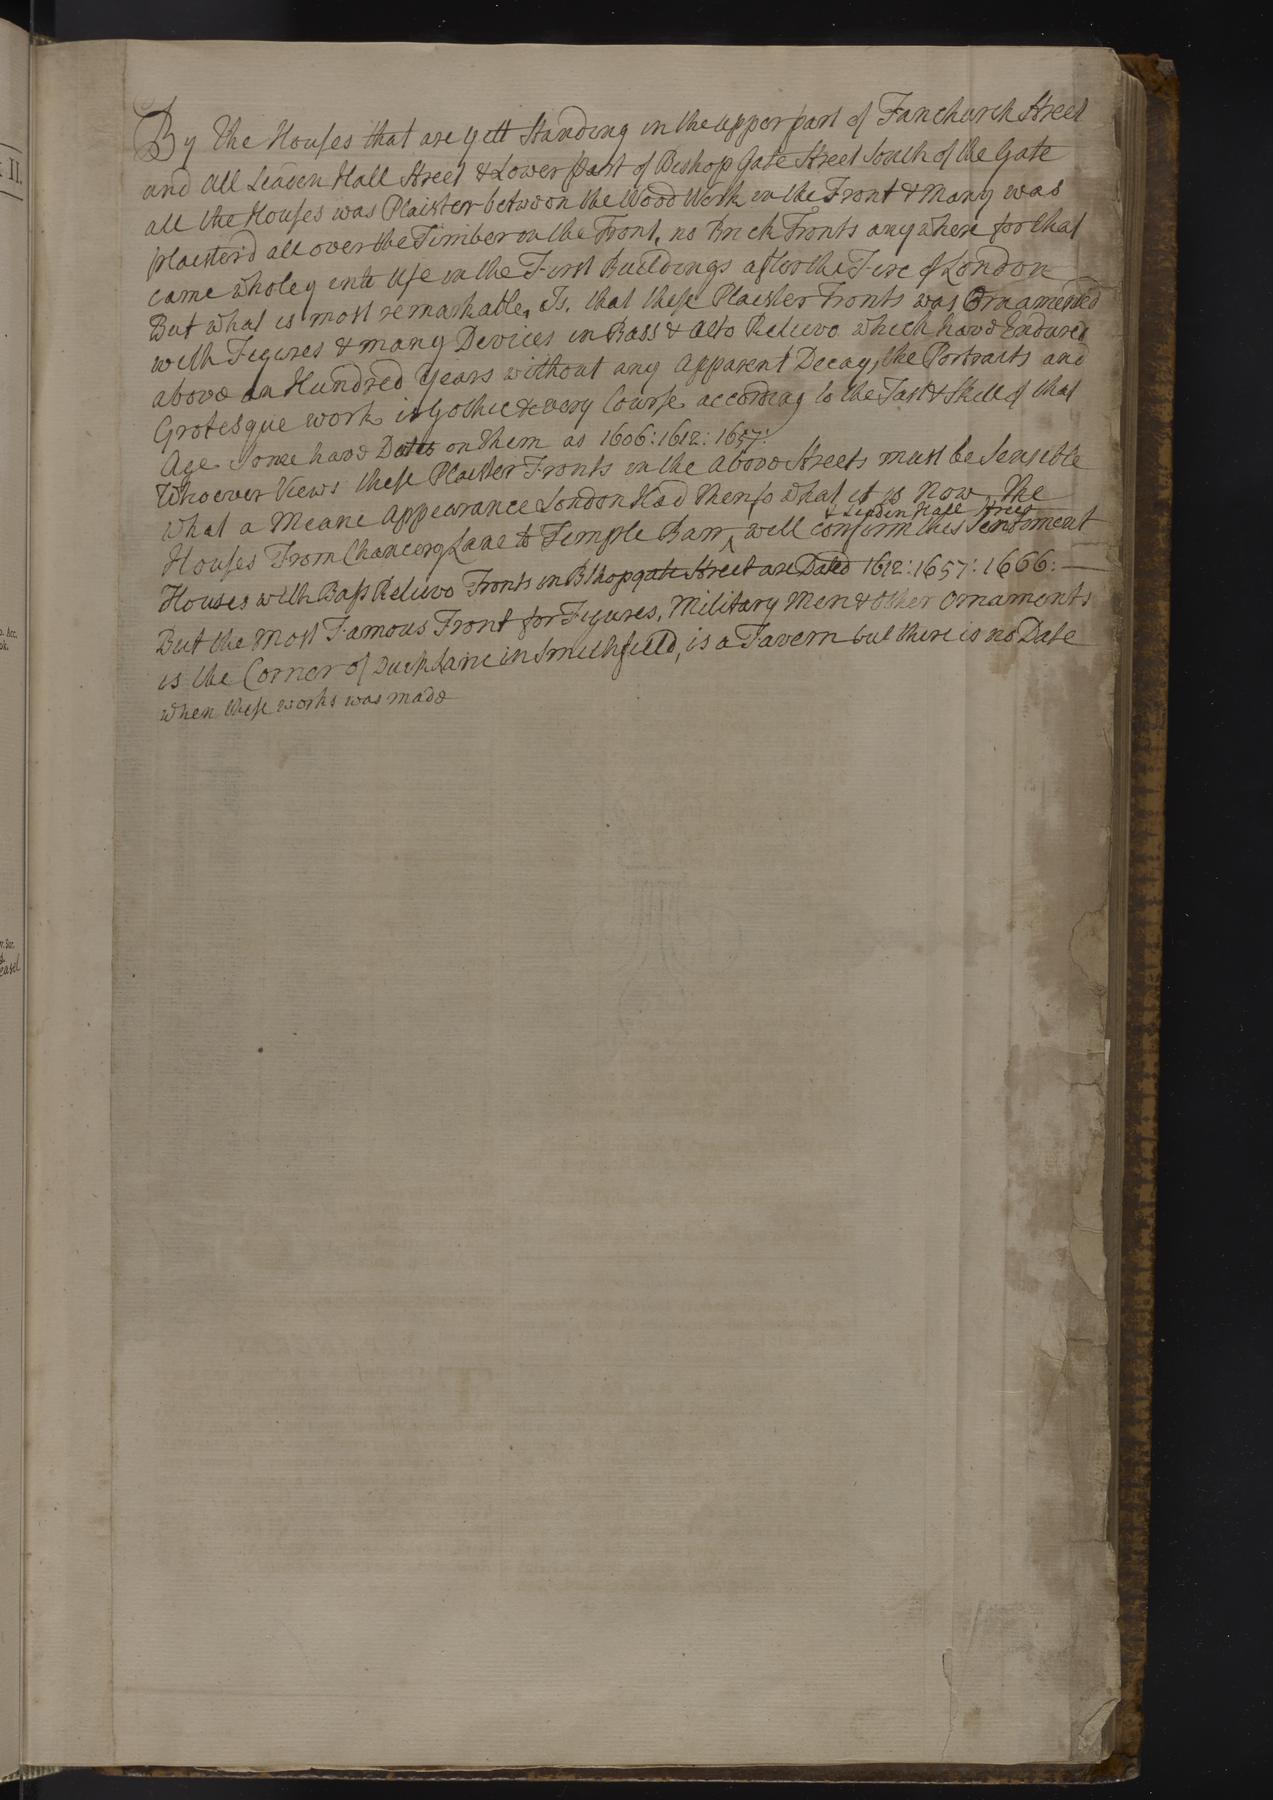 By the Houses that are yett Standing in the upper part of Fanchurch Street
and all Leaden Hall Street & Lower part of Bishop Gate Street South of the Gate
all the Houses was Plaister between the Wood Work in the Front & Many was
plaister'd all over the Timber in the Front, no Brick Fronts any where for that
came wholey into Use in the First Buildings after the Fire of London
But what is most remarkable, Is, that these Plaister Fronts was Ornamented
with Figures & many Devices in Bass & Alto Relievo which have Endured
above an Hundred Years without any apparent Decay, the Portraits and
Grotesque work is Gothic & very Course according to the Tast & Skill of that
Age Some have Dates on them as 1606: 1612: 1657:
Whoever Views these Plaister Fronts in the above Streets must be Sensible
what a Meane Appearance London Had then, to what it is Now, The
& Leaden Hall Street
Houses From Chancery Lane to Temple Barr ^ will confirm this Sentiment
Houses with Bass Relievo Fronts in Bishopgate Street are Dated 1612: 1657: 1666:
But the Most Famous Front for Figures, Military Men & other Ornaments
is the Corner of Duck Lane in Smithfield, is a Tavern but there is no Date
when these works was made
II.